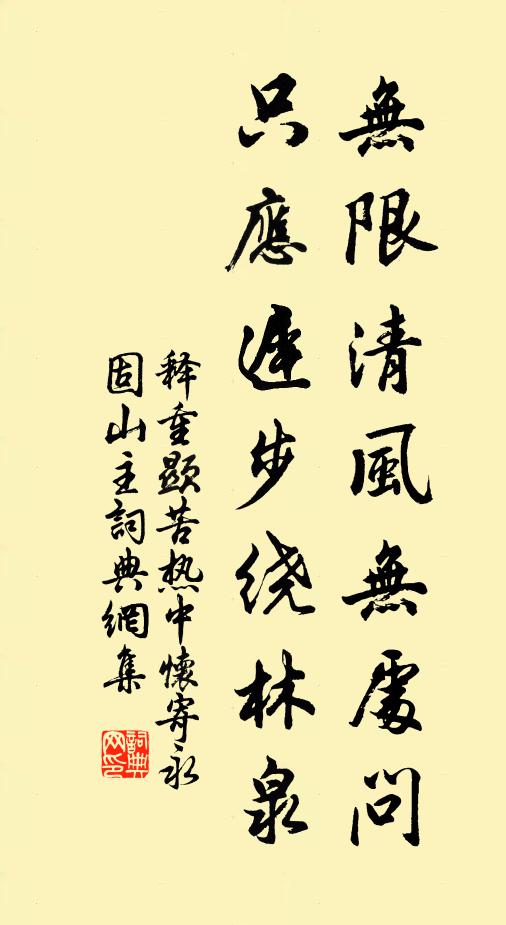 無限清風無處問
只應遲步绕林泉
释重顯苦热中懷寄永
固山主詞典網集
詞典网印